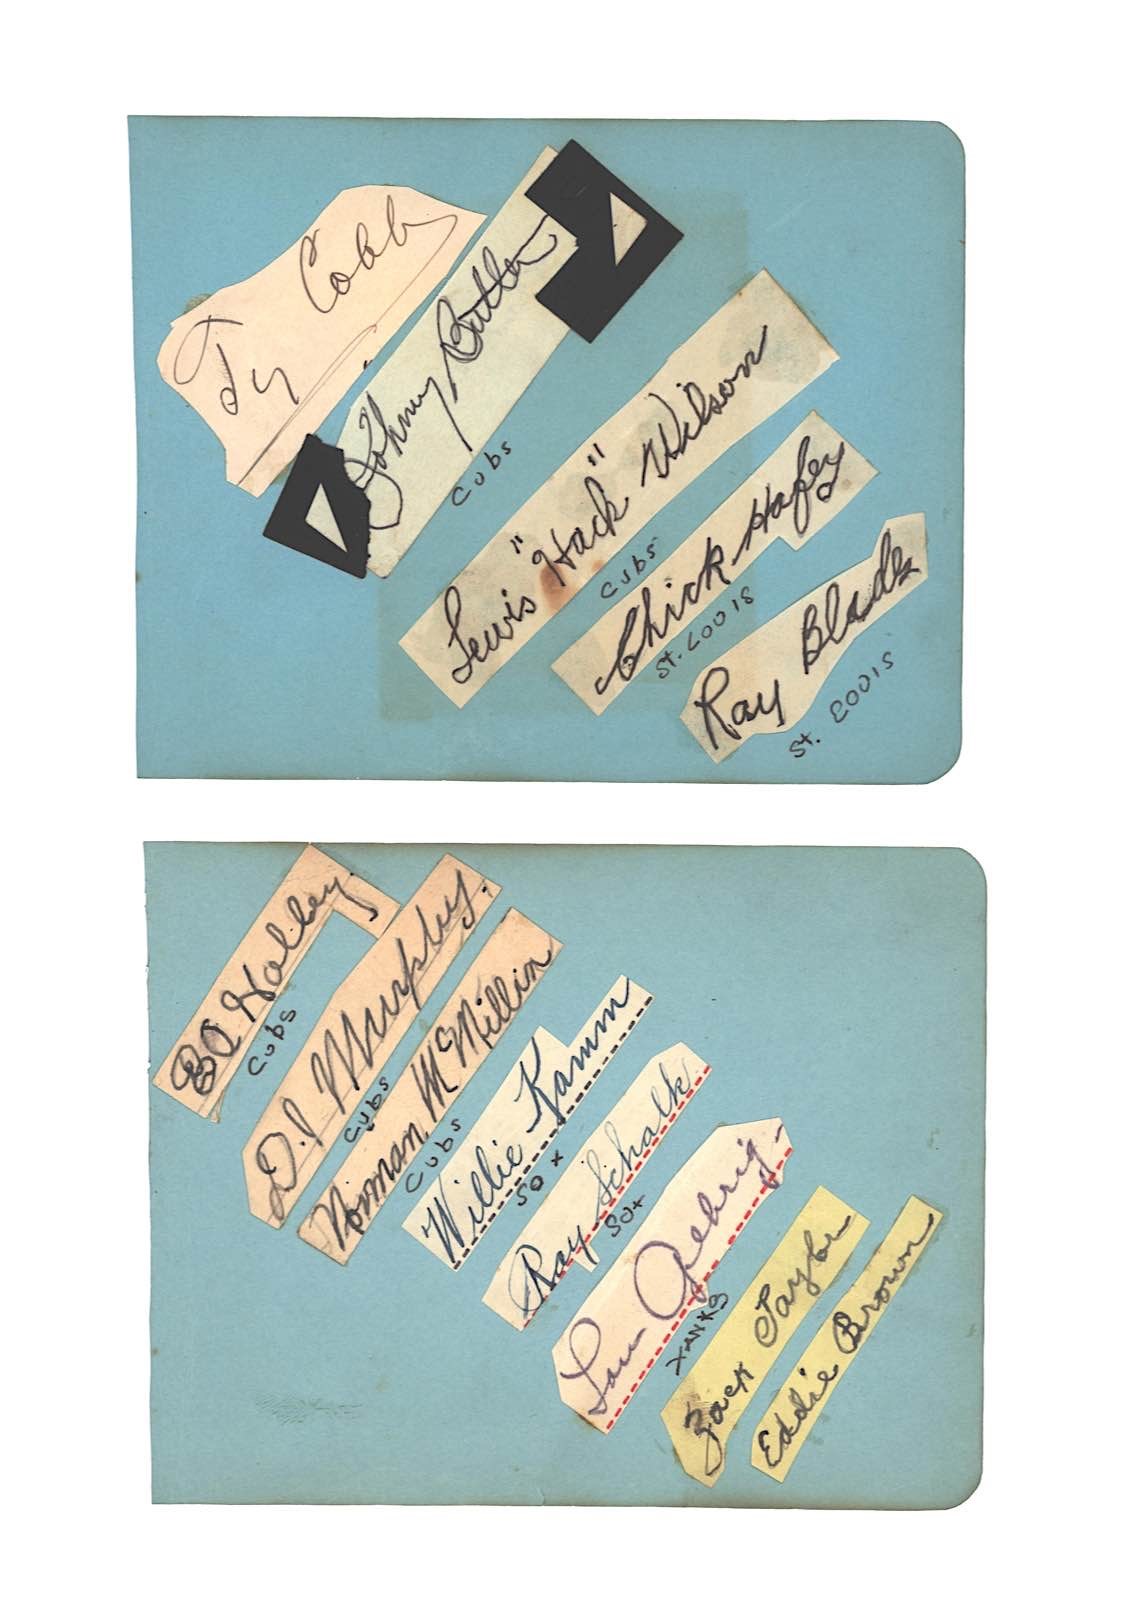 Ty Cobb
Johnny Butler
Cubs
Lewis "Hack" Wilson
Cubs
Chick Hafey
St. Louis
Ray Blades
St. Louis
Ed Holley
Cubs
D. J. Murphy.
Cubs
Norman McMillin
Cubs
Willie Kamm
SOX
Ray Schalk
SOX
Lou Gehrig
YANKS
Zack Taylor
Eddie Brown